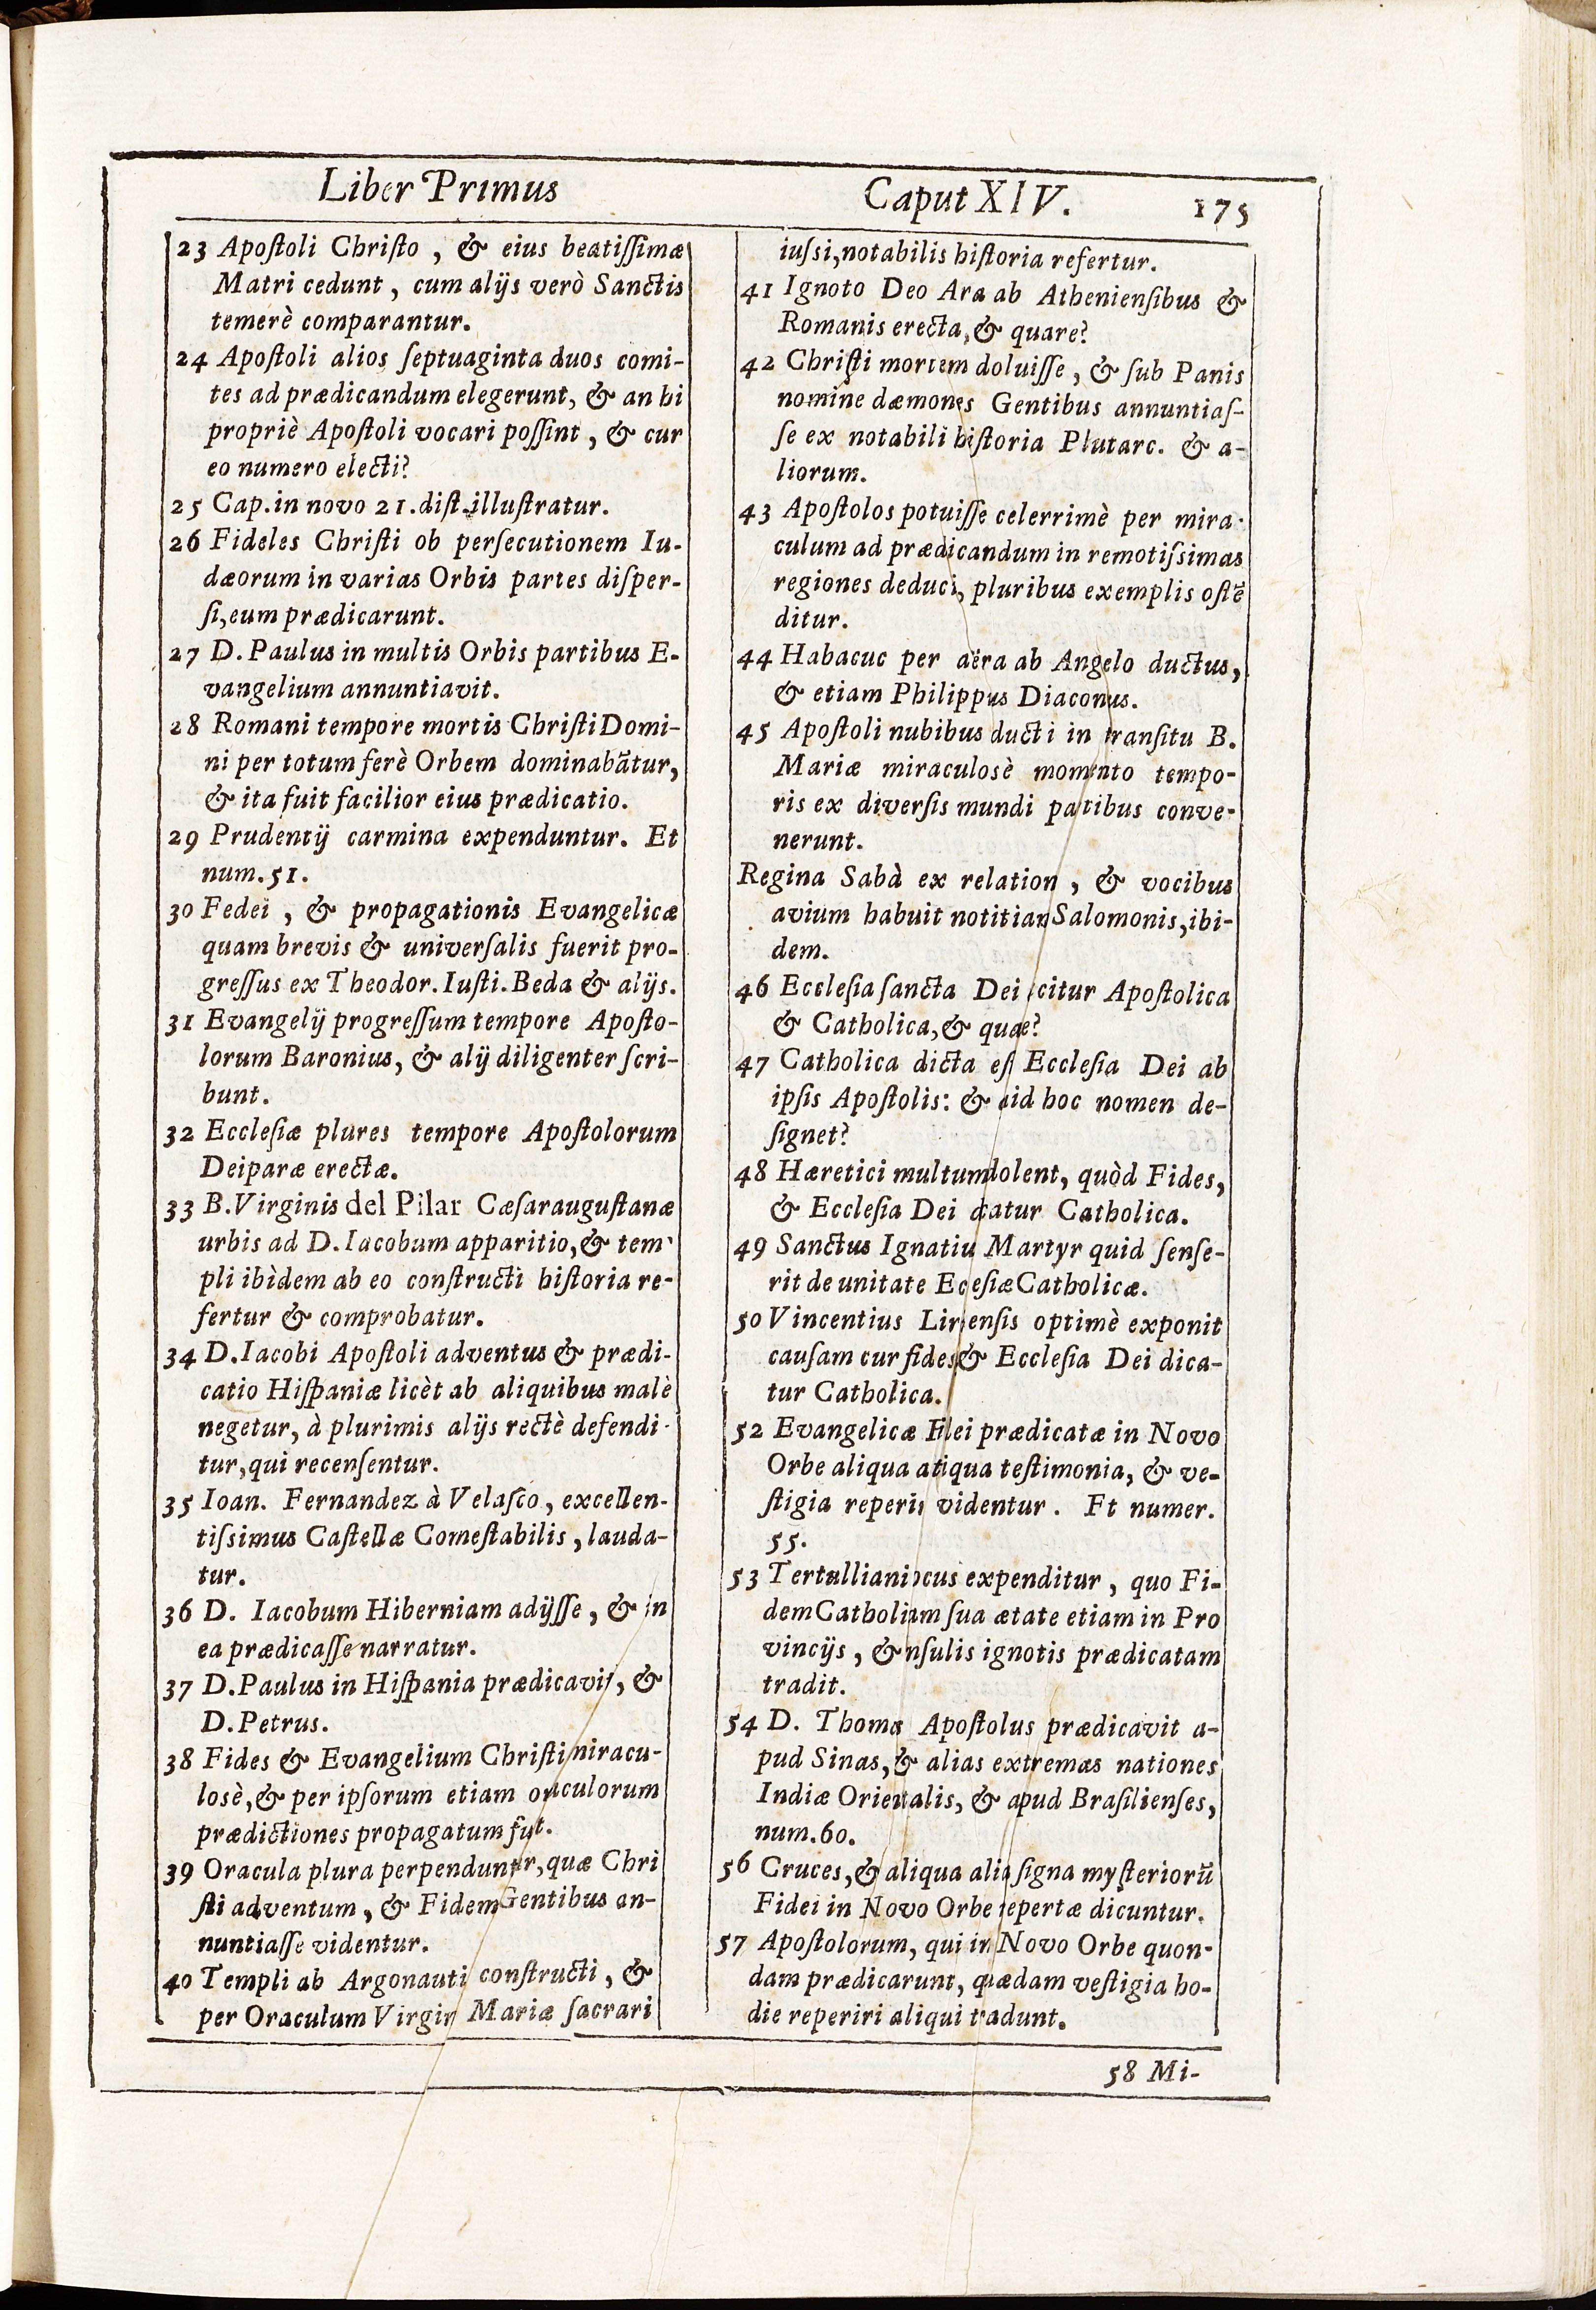 Liber Primus
Caput XIV.
175
23 Apoſtoli Chriſto , & eius beatiſſimæ
Matri cedunt , cum alijs verò Sanctis
temerè comparantur.
24 Apoſtoli alios ſeptuaginta duos comi-
tes ad prædicandum elegerunt, & an hi
propriè Apoſtoli vocari poſſint , & cur
eo numero electi?
25 Cap. in novo 21. diſt. illuſtratur.
26 Fideles Chriſti ob perſecutionem Iu-
dæorum in varias Orbis partes diſper-
ſi, eum prædicarunt.
27 D. Paulus in multis Orbis partibus E-
vangelium annuntiavit.
28 Romani tempore mortis Chriſti Domi-
ni per totum ferè Orbem dominabātur,
& ita fuit facilior eius prædicatio.
29 Prudentij carmina expenduntur. Et
num. 51.
30 Fedei , & propagationis Evangelicæ
quam brevis & univerſalis fuerit pro-
greſſus ex Theodor. Iuſti. Beda & alijs.
31 Evangelij progreſſum tempore Apoſto-
lorum Baronius, & alij diligenter ſcri-
bunt.
32 Eccleſiæ plures tempore Apoſtolorum
Deiparæ erectæ.
33 B. Virginis del Pilar Cæſarauguſtanæ
urbis ad D. Iacobum apparitio, & tem-
pli ibìdem ab eo constructi hiſtoria re-
fertur & comprobatur.
34 D. Iacobi Apoſtoli adventus & prædi-
catio Hiſpaniæ licèt ab aliquibus malè
negetur, à plurimis alijs rectè defendi-
tur, qui recenſentur.
35 Ioan. Fernandez à Velaſco , excellen-
tiſsimus Caſtellæ Comeſtabilis , lauda-
tur.
36 D. Iacobum Hiberniam adijſſe , & in
ea prædicaſſe narratur.
37 D. Paulus in Hiſpania prædicavit , &
D. Petrus.
38 Fides & Evangelium Chriſti niracu-
losè, & per ipſorum etiam oraculorum
prædictiones propagatum fut.
39 Oracula plura perpenduntur, quæ Chri
ſti adventum , & Fidem Gentibus an-
nuntiaſſe videntur.
40 Templi ab Argonauti conſtructi , &
per Oraculum Virgin Mariæ ſacrari
iuſsi, notabilis hiſtoria refertur.
41 Ignoto Deo Ara ab Athenienſibus &
Romanis erecta, & quare?
42 Chriſti mortem doluiſſe , & ſub Panis
nomine dæmones Gentibus annuntiaſ-
ſe ex notabili hiſtoria Plutarc. & a-
liorum.
43 Apoſtolos potuiſſe celerrimè per mira-
culum ad prædicandum in remotiſsimas
regiones deduci, pluribus exemplis oſtē
ditur.
44 Habacuc per aëra ab Angelo ductus,
& etiam Philippus Diaconus.
45 Apoſtoli nubibus ducti in tranſitu B.
Mariæ miraculosè momento tempo-
ris ex diverſis mundi partibus conve-
nerunt.
Regina Sabà ex relation , & vocibus
avium habuit notitian Salomonis, ibi-
dem.
46 Eccleſia ſancta Dei icitur Apoſtolica
& Catholica, & quæ?
47 Catholica dicta eſt Eccleſia Dei ab
ipſis Apoſtolis: & uid hoc nomen de-
ſignet?
48 Hæretici multum dolent, quòd Fides,
& Eccleſia Dei dicatur Catholica.
49 Sanctus Ignatiu Martyr quid ſenſe-
rit de unitate Eceſiæ Catholicæ.
50 Vincentius Lirienſis optimè exponit
cauſam cur fides & Eccleſia Dei dica-
tur Catholica.
52 Evangelicæ Fidei prædicatæ in Novo
Orbe aliqua atiqua teſtimonia, & ve-
ſtigia reperiri videntur . Et numer.
55.
53 Tertulliani locus expenditur , quo Fi-
dem Catholicam ſua ætate etiam in Pro
vincijs , & nſulis ignotis prædicatam
tradit.
54 D. Thomas Apoſtolus prædicavit a-
pud Sinas, & alias extremas nationes
Indiæ Orientalis, & apud Braſilienſes,
num. 60.
56 Cruces, & aliqua alia ſigna myſteriorū
Fidei in Novo Orbe repertæ dicuntur.
57 Apoſtolorum, qui in Novo Orbe quon-
dam prædicarunt, quædam veſtigia ho-
die reperiri aliqui tradunt.
58 Mi-